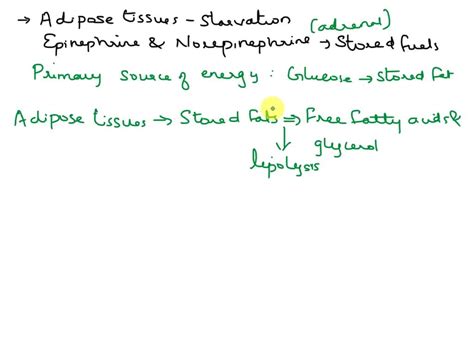 → Adipose tissues - Starvation (adrenal)
Epinephrine & Norepinephrine → Stored fuels
Primary source of energy : Glucose → Stored fat
Adipose tissues → Stored fats ⇒ Free fatty acids &
glycerol
↓
lipolysis